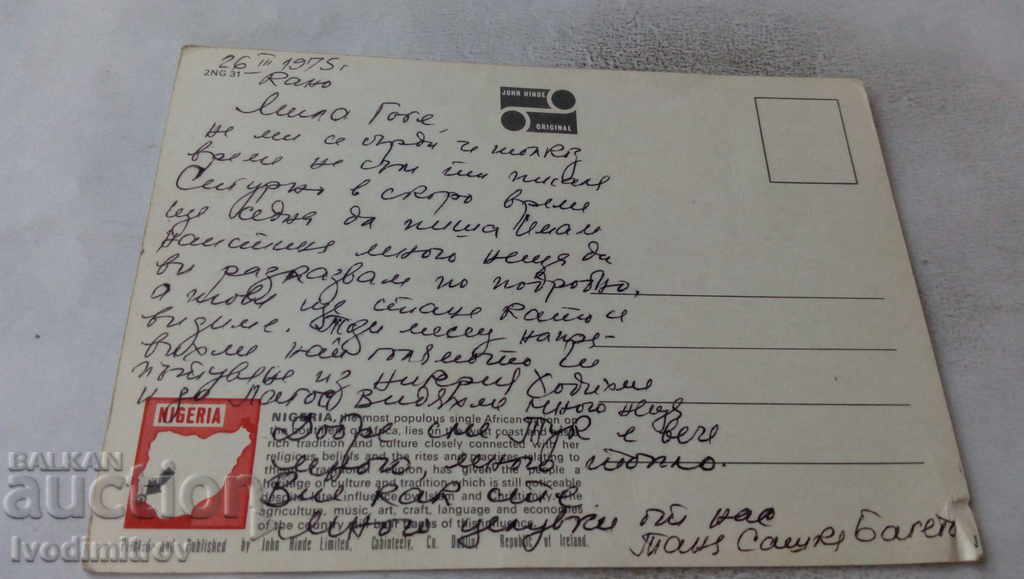 26 III 1975 г
2NG 31
Кано
JOHN HINDE
ORIGINAL
Мила Гоге
не ми се сърди че толкоз
време не съм ти писала
Сигурно в скоро време
ще седна да пиша Имам
наистина много неща да
ви разказвам по подробно,
а това ще стане като се
видиме. Този месец напра-
вихме най голямото си
пътуване из Нигерия Ходихме
и до Лагос Видяхме много неща
Добре сме Тук е вече
много, много топло.
Вие как сте
Много целувки от нас
Таня Сашка
NIGERIA
NIGERIA, the most populous single African nation on
lies in
coast and
rich tradition and culture closely connected with her
religious beliefs and the rites and
relating to
has given the people a
heritage of culture and tradition which is still noticeable
influence
Islam and
agriculture, music, art, craft, language and economies
of the country
parts of this
and Published by John Hinde Limited, Cabinteely, Co. Dublin, Republic of Ireland.
BALKAN
auction
Ivodimitrov